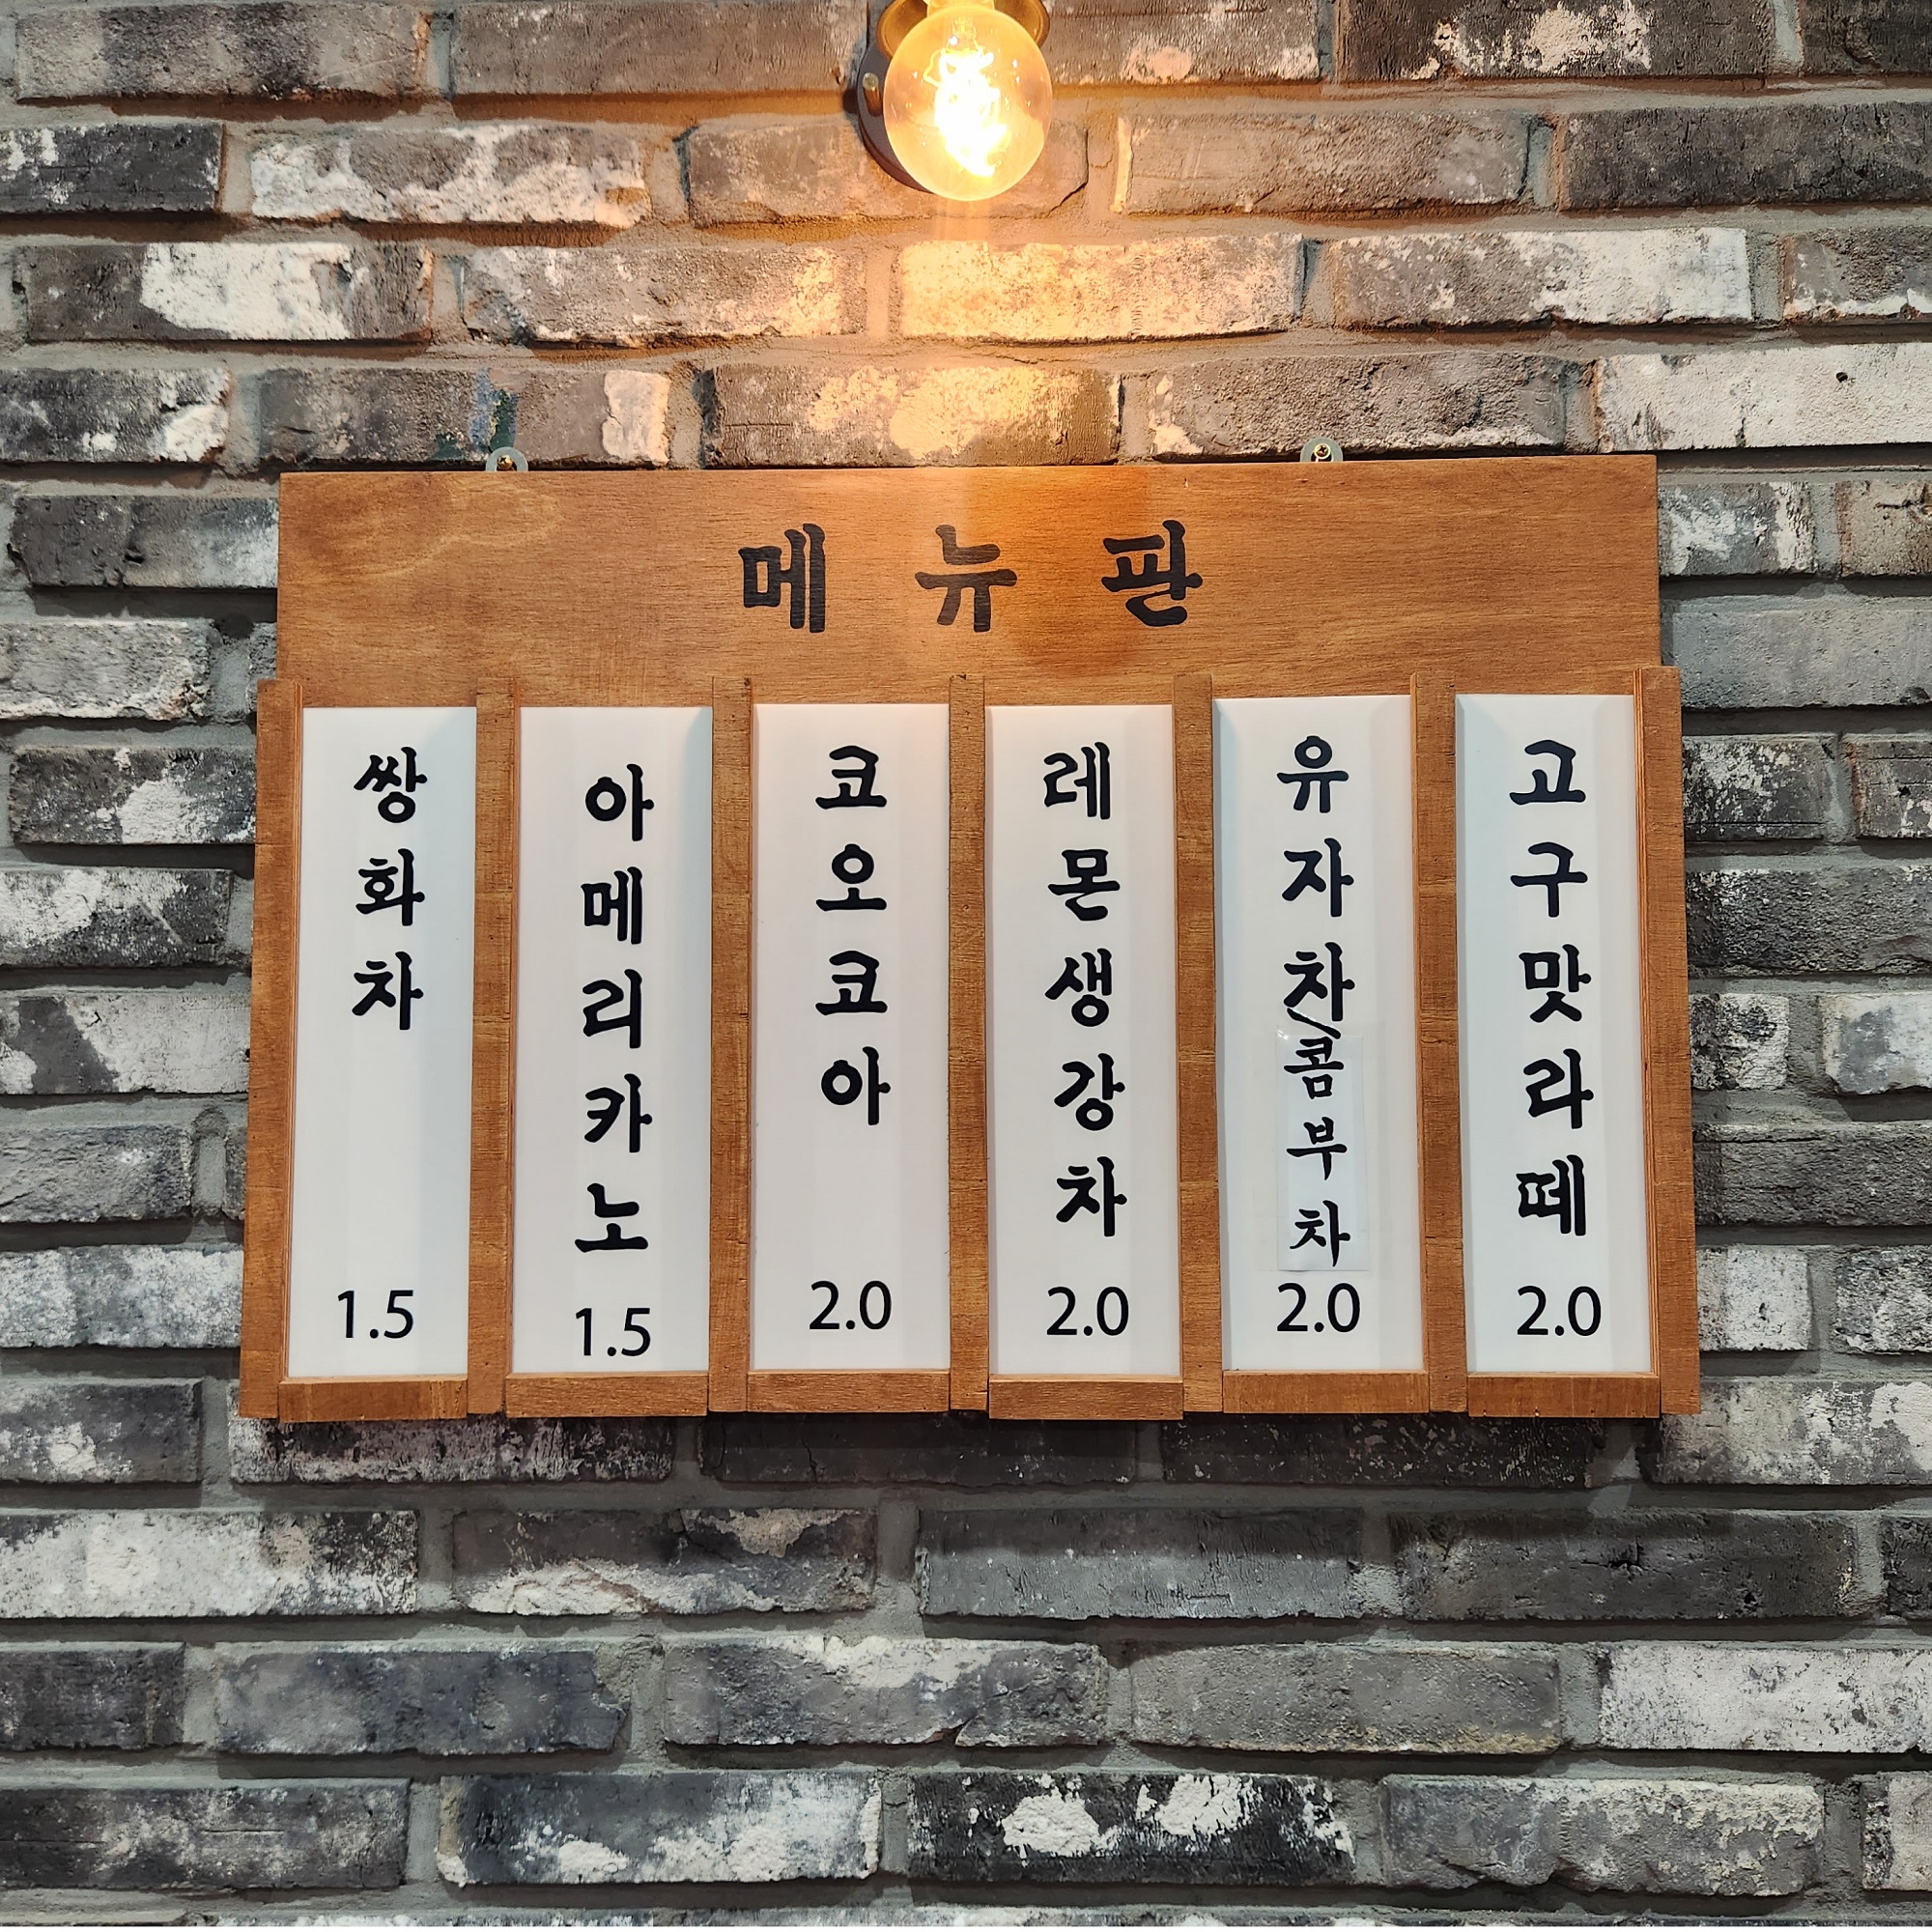 메뉴판
쌍화차
1.5
아메리카노
1.5
코오코아
2.0
레몬생강차
2.0
유자차/콤부차
2.0
고구맛라떼
2.0